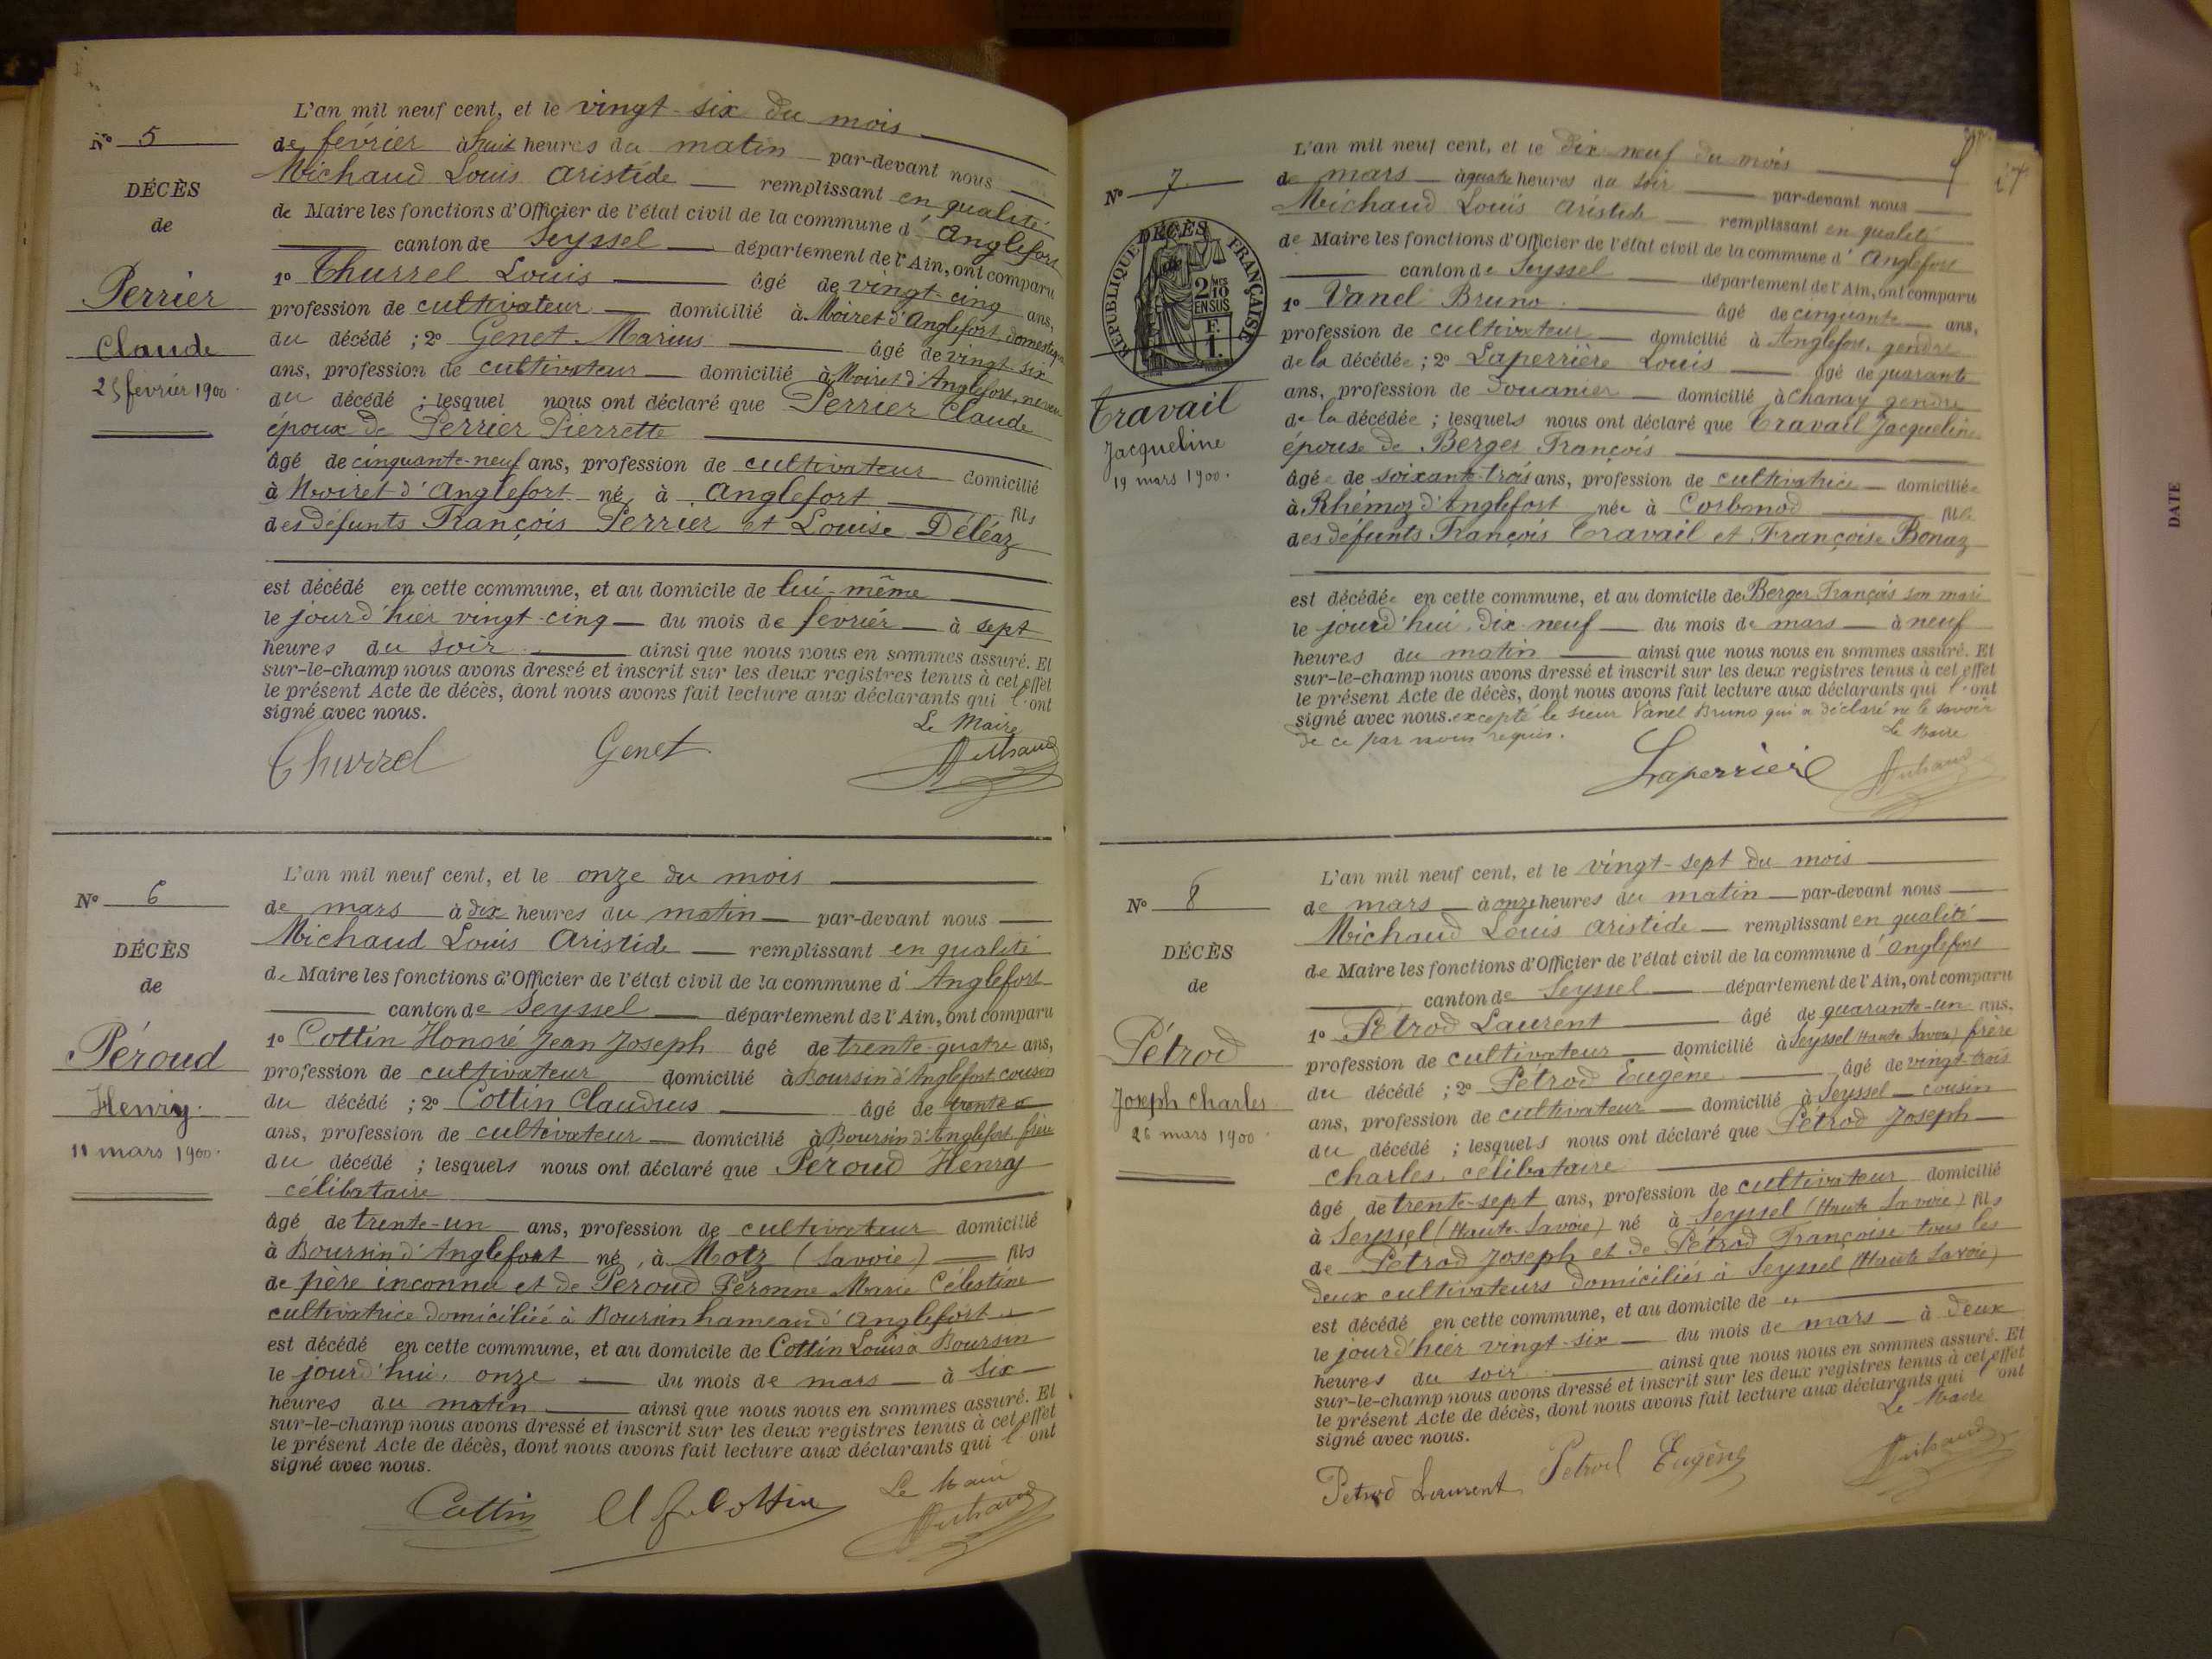 L'an mil neuf cent, et le vingt-six du mois
N° 5
de février à huit heures du matin par-devant nous
Michaud Louis Aristide remplissant en qualité
DÉCÈS
de
Perrier
Claude
25 février 1900.
de Maire les fonctions d'Officier de l'état civil de la commune d'Anglefort
canton de Seyssel département de l'Ain, ont comparu
1° Thurrel Louis âgé de vingt-cinq ans,
profession de cultivateur domicilié à Moiret d'Anglefort, domestique
du décédé ; 2° Genet Marius âgé de vingt-six
ans, profession de cultivateur domicilié à Moiret d'Anglefort, neveu
du décédé ; lesquel nous ont déclaré que Perrier Claude
époux de Perrier Pierrette
âgé de cinquante-neuf ans, profession de cultivateur domicilié
à Moiret d'Anglefort né à Anglefort fils
des défunts François Perrier et Louise Déléaz
est décédé en cette commune, et au domicile de lui-même
le jourd'hier vingt-cinq du mois de février à sept
heures du soir ainsi que nous nous en sommes assuré. Et
sur-le-champ nous avons dressé et inscrit sur les deux registres tenus à cet effet
le présent Acte de décès, dont nous avons fait lecture aux déclarants qui l'ont
signé avec nous.
Le Maire
Thurrel Genet Michaud
L'an mil neuf cent, et le onze du mois
N° 6
DÉCÈS
de
Péroud
Henry.
11 mars 1900.
de mars à dix heures du matin par-devant nous
Michaud Louis Aristide remplissant en qualité
de Maire les fonctions d'Officier de l'état civil de la commune d'Anglefort
canton de Seyssel département de l'Ain, ont comparu
1° Cottin Honoré Jean Joseph âgé de trente-quatre ans,
profession de cultivateur domicilié à Boursin d'Anglefort cousin
du décédé ; 2° Cottin Claudius âgé de trente
ans, profession de cultivateur domicilié à Boursin d'Anglefort frère
du décédé ; lesquels nous ont déclaré que Péroud Henry
célibataire
âgé de trente-un ans, profession de cultivateur domicilié
à Boursin d'Anglefort né à Motz (Savoie) fils
de père inconnu et de Peroud Péronne Marie Célestine
cultivatrice domiciliée à Boursin hameau d'Anglefort
est décédé en cette commune, et au domicile de Cottin Louis à Boursin
le jourd'hui, onze du mois de mars à six
heures du matin ainsi que nous nous en sommes assuré. Et
sur-le-champ nous avons dressé et inscrit sur les deux registres tenus à cet effet
le présent Acte de décès, dont nous avons fait lecture aux déclarants qui l'ont
signé avec nous.
Le Maire
Cottin Cottin Michaud
L'an mil neuf cent, et le dix-neuf du mois
N° 7
DÉCÈS
RÉPUBLIQUE FRANÇAISE
2/10 EN SUS
F.
1.
Travail
Jacqueline
19 mars 1900.
de mars à quatre heures du soir par-devant nous
Michaud Louis Aristide remplissant en qualité
de Maire les fonctions d'Officier de l'état civil de la commune d'Anglefort
canton de Seyssel département de l'Ain, ont comparu
1° Vanel Bruno âgé de cinquante ans,
profession de cultivateur domicilié à Anglefort, gendre
de la décédée ; 2° Laperrière Louis âgé de quarante
ans, profession de Douanier domicilié à Chanay gendre
de la décédée ; lesquels nous ont déclaré que Travail Jacqueline
épouse de Berger François
âgée de soixante-trois ans, profession de cultivatrice domiciliée
à Rhémoz d'Anglefort née à Corbonod fille
des défunts François Travail et Françoise Bonaz
est décédée en cette commune, et au domicile de Berger François son mari
le jourd'hui, dix-neuf du mois de mars à neuf
heures du matin ainsi que nous nous en sommes assuré. Et
sur-le-champ nous avons dressé et inscrit sur les deux registres tenus à cet effet
le présent Acte de décès, dont nous avons fait lecture aux déclarants qui l'ont
signé avec nous. excepté le sieur Vanel Bruno qui a déclaré ne le savoir
de ce par nous requis.
Le Maire
Laperrière Michaud
L'an mil neuf cent, et le vingt-sept du mois
N° 8
DÉCÈS
de
Pétrod
Joseph Charles
26 mars 1900.
de mars à onze heures du matin par-devant nous
Michaud Louis Aristide remplissant en qualité
de Maire les fonctions d'Officier de l'état civil de la commune d'Anglefort
canton de Seyssel département de l'Ain, ont comparu
1° Pétrod Laurent âgé de quarante-un ans,
profession de cultivateur domicilié à Seyssel (Haute Savoie) frère
du décédé ; 2° Pétrod Eugène âgé de vingt-trois
ans, profession de cultivateur domicilié à Seyssel cousin
du décédé ; lesquels nous ont déclaré que Pétrod Joseph
Charles, célibataire
âgé de trente-sept ans, profession de cultivateur domicilié
à Seyssel (Haute-Savoie) né à Seyssel (Haute Savoie) fils
de Pétrod Joseph et de Pétrod Françoise tous les
deux cultivateurs domiciliés à Seyssel (Haute Savoie)
est décédé en cette commune, et au domicile de "
le jourd'hier vingt-six du mois de mars à deux
heures du soir ainsi que nous nous en sommes assuré. Et
sur-le-champ nous avons dressé et inscrit sur les deux registres tenus à cet effet
le présent Acte de décès, dont nous avons fait lecture aux déclarants qui l'ont
signé avec nous.
Le Maire
Petrod Laurent Petrod Eugène Michaud
DATE